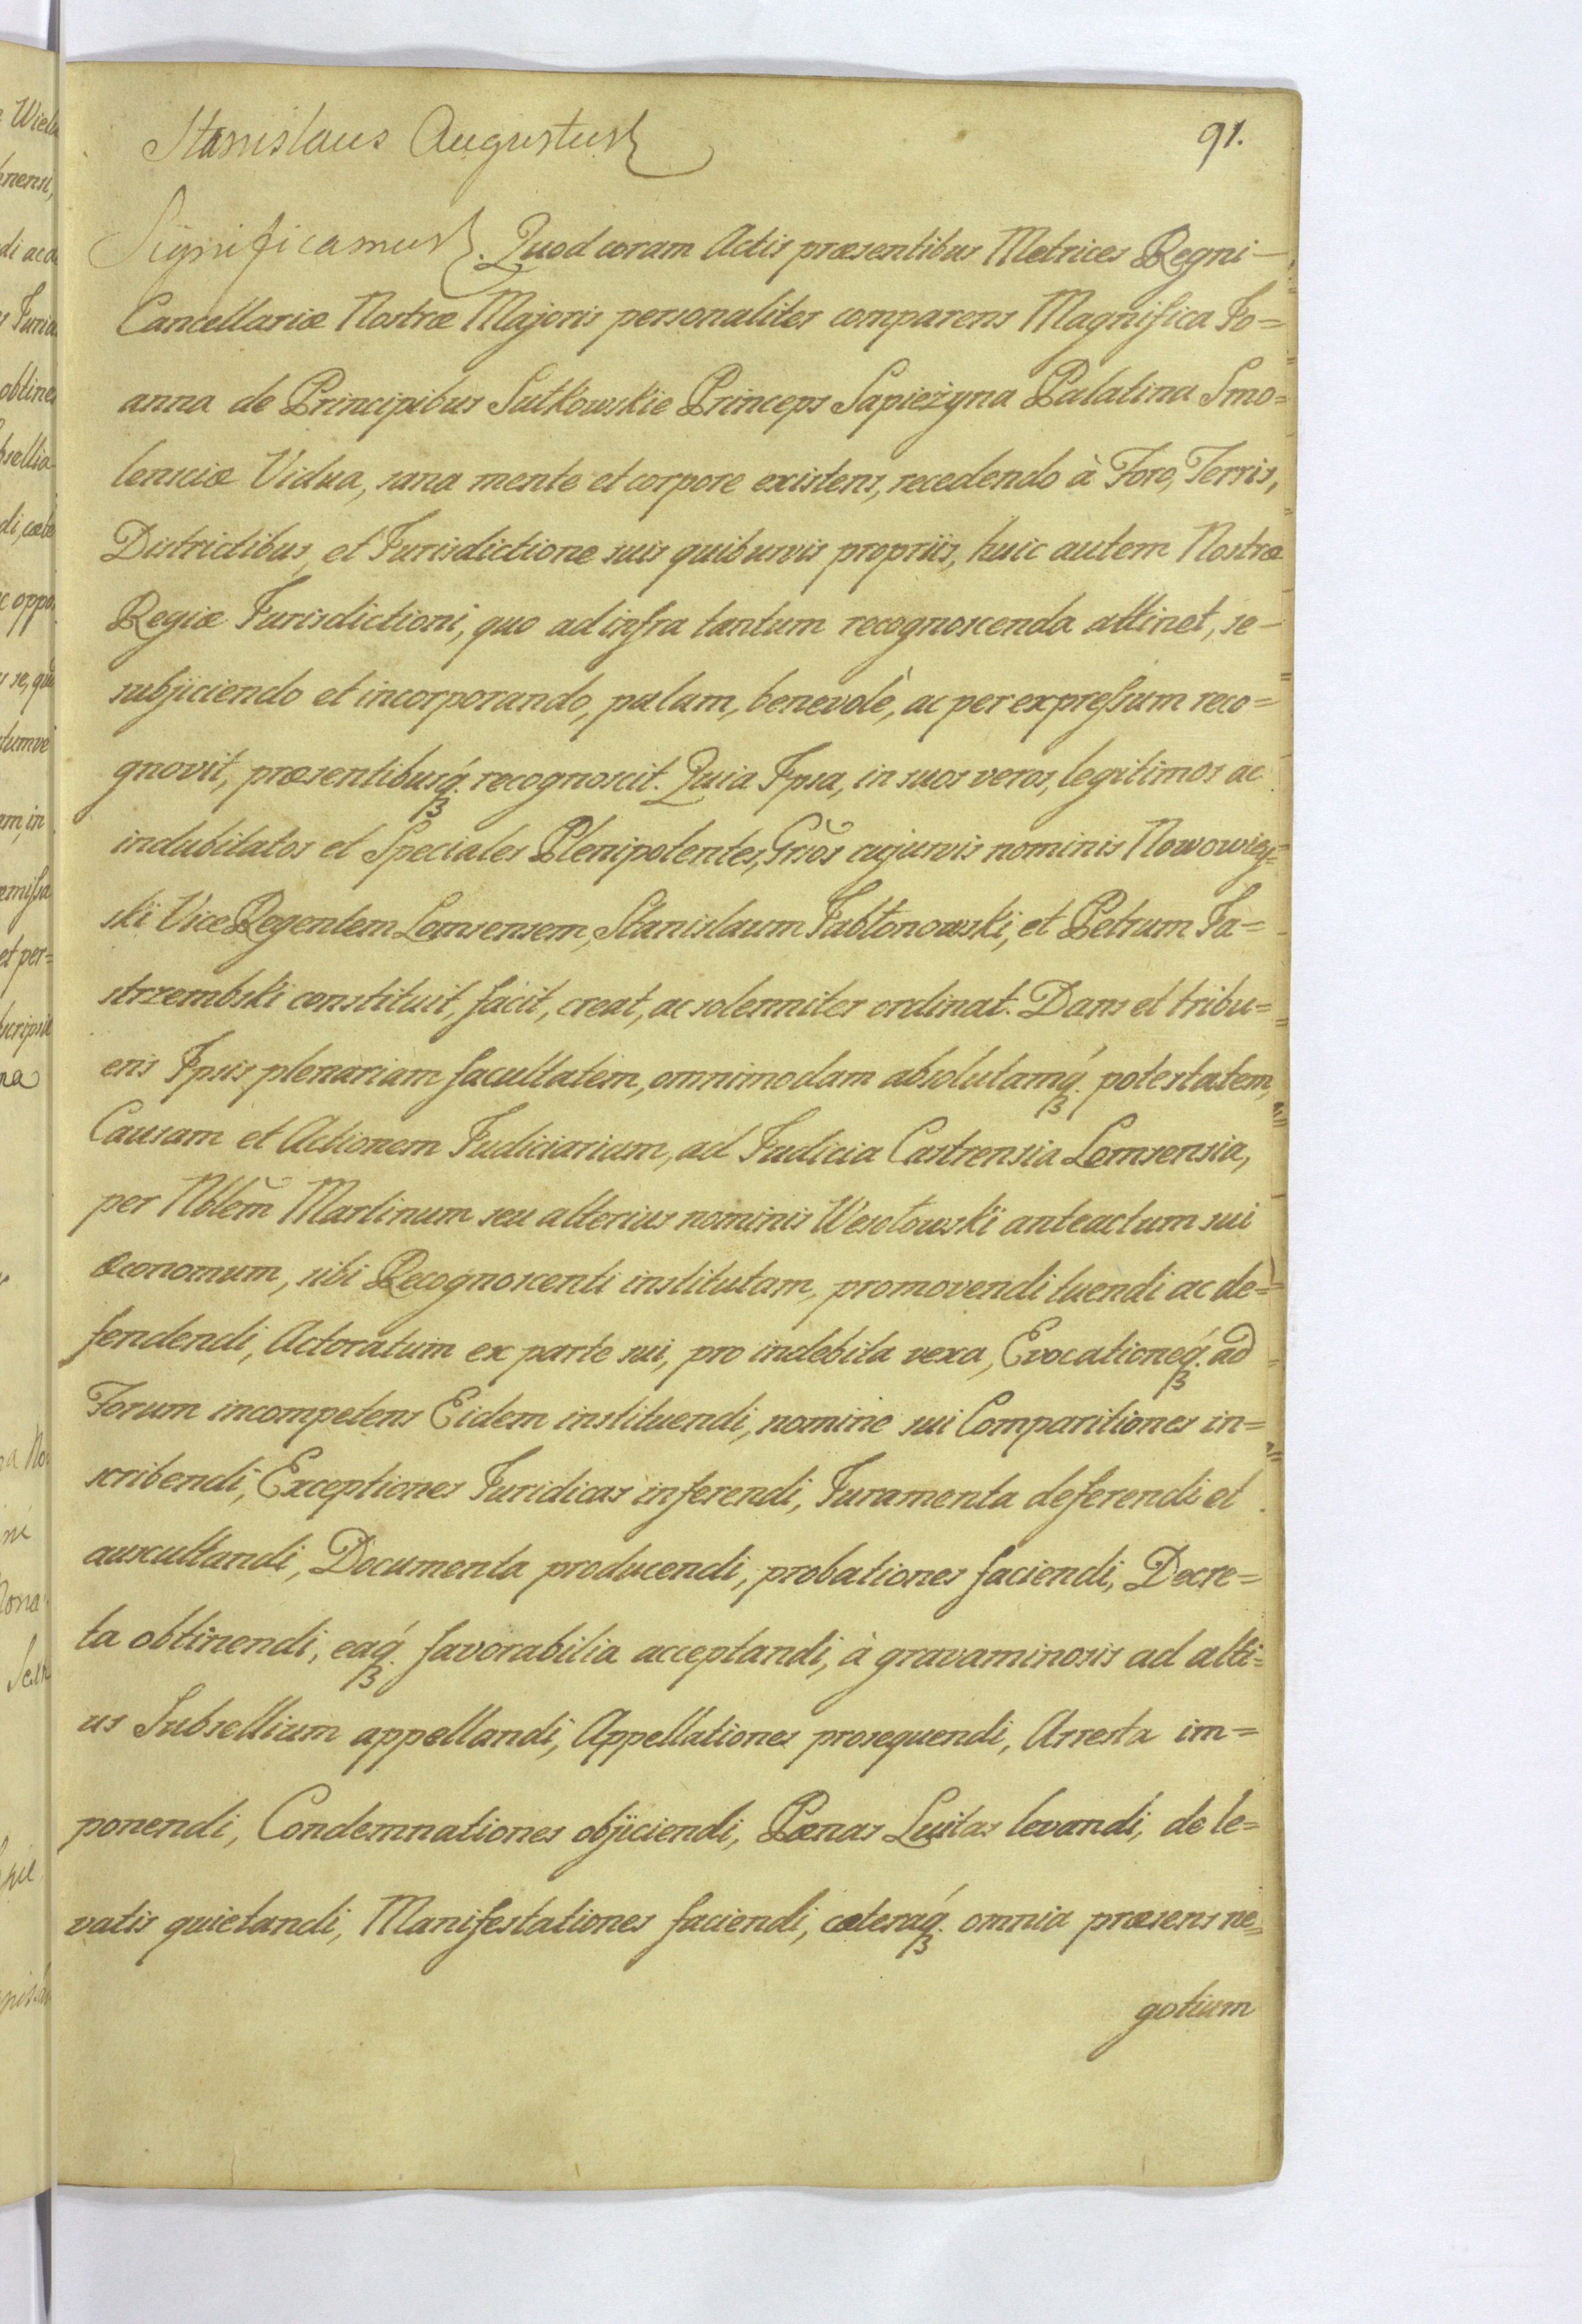 91.
Stanislaus Augustus
Significamus. Quod coram Actis præsentibus Metrices Regni
Cancellariæ Nostræ Majoris personaliter comparens Magnifica Jo=
anna de Principibus Sułkowskie Princeps Sapieżyna Palatina Smo=
lensciæ Vidua, sana mente et corpore existens, recedendo à Foro, Terris,
Districtibus, et Jurisdictione suis quibusvis propriis, huic autem Nostræ
Regiæ Jurisdictioni, quo ad infra tantum recognoscenda attinet, se
subjiciendo et incorporando, palam, benevolè, ac per expressum reco=
gnovit, præsentibusq́ꝫ recognoscit. Quia Ipsa, in suos veros, legitimos ac
indubitatos et Speciales Plenipotentes, Grōs cujusvis nominis Nowowiey=
ski Vice Regentem Lomsensem, Stanislaum Jabłonowski, et Petrum Ja=
strzembski constituit, facit, creat, ac solenniter ordinat. Dans et tribu=
ens Ipsis plenariam facultatem, omnimodam absolutamq́ꝫ potestatem,
Causam et Actionem Judiciariam, ad Judicia Castrensia Lomsensia,
per Nblem̃ Martinum seu alterius nominis Wesołowski anteactum sui
œconomum, sibi Recognoscenti institutam, promovendi tuendi ac de=
fendendi, Actoratum ex parte sui, pro indebita vexa, Evocationeq́ꝫ ad
Forum incompetens Eidem instituendi, nomine sui Comparitiones in=
scribendi, Exceptiones Juridicas inferendi, Juramenta deferendi et
auscultandi, Documenta producendi, probationes faciendi, Decre=
ta obtinendi, eaq́ꝫ favorabilia acceptandi, à gravaminosis ad alti=
us Subsellium appellandi, Appellationes prosequendi, Arresta im=
ponendi, Condemnationes objiciendi, Pœnas Luitas levandi, de le=
vatis quietandi, Manifestationes faciendi, cæteraq́ꝫ omnia præsens ne=
gotium